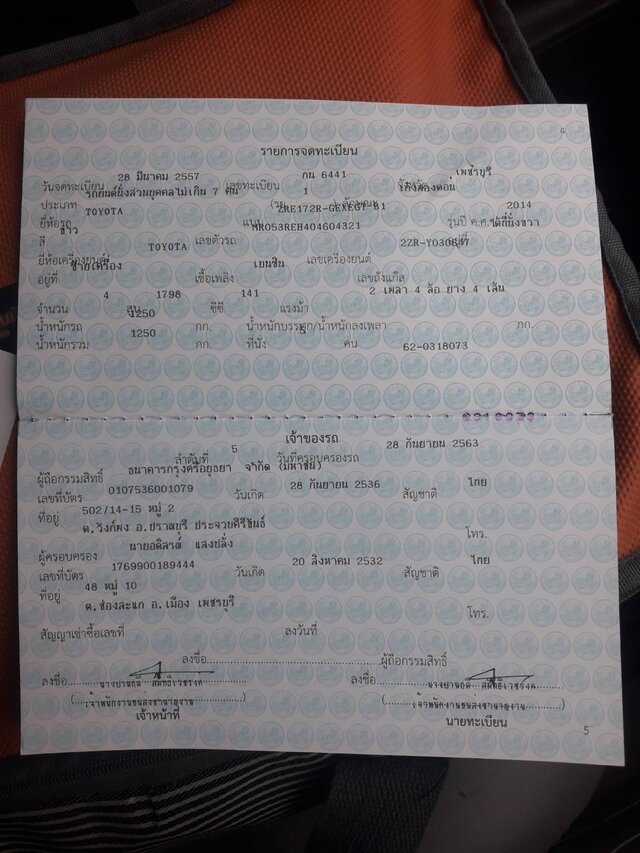 4
รายการจดทะเบียน
วันจดทะเบียน 28 มีนาคม 2557 เลขทะเบียน กน 6441 จังหวัด เพชรบุรี
ประเภท รถยนต์นั่งส่วนบุคคลไม่เกิน 7 คน (รย. 1 ลักษณะ เก๋งสองตอน
ยี่ห้อรถ TOYOTA แบบ ZRE172R-GEXEGT B1 รุ่นปี ค.ศ. 2014
สี ขาว เลขตัวรถ MR053REH404604321 อยู่ที่ ใต้ที่นั่งขวา
ยี่ห้อเครื่องยนต์ TOYOTA เลขเครื่องยนต์
อยู่ที่ ซ้ายเครื่อง เชื้อเพลิง เบนซิน เลขถังแก๊ส
จำนวน 4 สูบ 1798 ซีซี 141 แรงม้า 2 เพลา 4 ล้อ ยาง 4 เส้น
น้ำหนักรถ 1250 กก. น้ำหนักบรรทุก/น้ำหนักลงเพลา กก.
น้ำหนักรวม 1250 กก. ที่นั่ง คน 62-0318073
เจ้าของรถ
ลำดับที่ 5 วันที่ครอบครองรถ 28 กันยายน 2563
ผู้ถือกรรมสิทธิ์ ธนาคารกรุงศรีอยุธยา จำกัด (มหาชน)
เลขที่บัตร 0107536001079 วันเกิด 28 กันยายน 2536 สัญชาติ ไทย
ที่อยู่ 502/14-15 หมู่ 2
ต.วังก์พง อ.ปราณบุรี ประจวบคีรีขันธ์ โทร.
ผู้ครอบครอง นายอดิสรณ์ แสงปลั่ง
เลขที่บัตร 1769900189444 วันเกิด 20 สิงหาคม 2532 สัญชาติ ไทย
ที่อยู่ 48 หมู่ 10
ต.ช่องสะแก อ.เมือง เพชรบุรี โทร.
สัญญาเช่าซื้อเลขที่ ลงวันที่
ลงชื่อ ผู้ถือกรรมสิทธิ์
ลงชื่อ ลงชื่อ
(เจ้าพนักงานขนส่งชำนาญงาน) (เจ้าพนักงานขนส่งชำนาญงาน)
เจ้าหน้าที่ นายทะเบียน
5